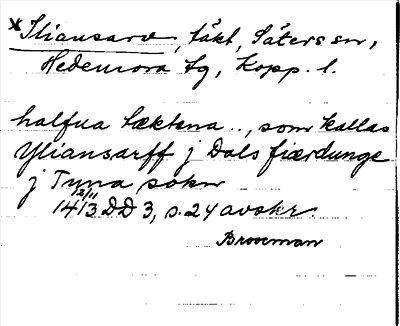 *Iliansarv, täkt, Säters sn,
Hedemora tg, Kopp. l.
halfua tæktena .., som kallas
Yliansarff j Dals fiærdunge
j Tuna sokn
12/11
1413 DD 3, s. 24 avskr.
Brovman